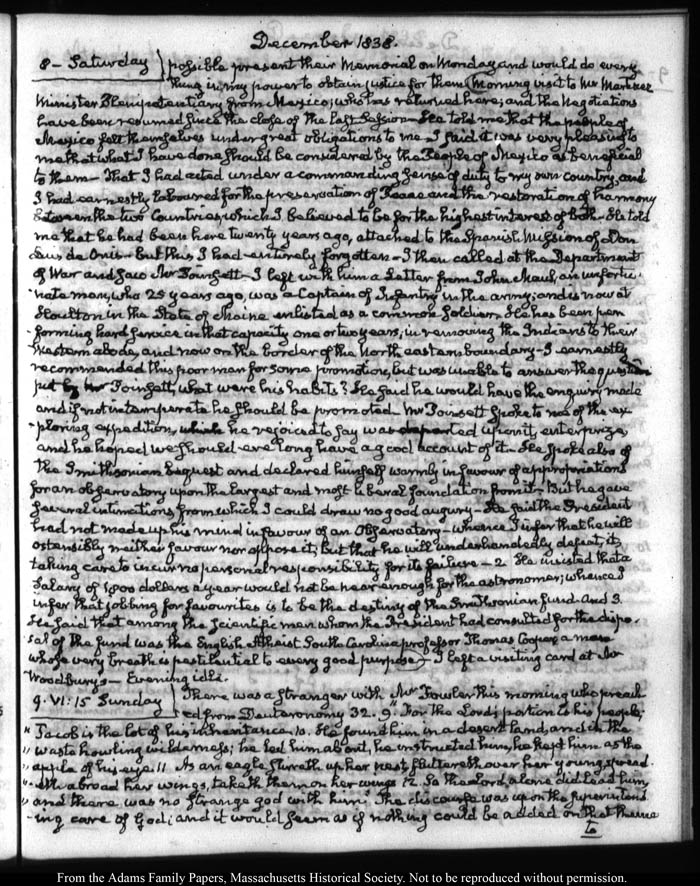 December 1838.
8 – Saturday) possible present their Memorial on Monday and would do every
thing in my power to obtain justice for them. Morning visit to Mr Martinez
Minister Plenipotentiary from Mexico, who has returned here; and the Negotiations
have been resumed since the close of the last Session – He told me that the people of
Mexico felt themselves under great obligations to me – I said it was very pleasing to
me that what I have done should be considered by the People of Mexico as beneficial
to them – That I had acted under a commanding sense of duty to my own Country, and
I had earnestly laboured for the preservation of Peace and the restoration of harmony
between the two Countries, which I believed to be for the highest interest of both – He told
me that he had been here twenty years ago, attached to the Spanish Mission of Don
Luis de Onis – but this I had entirely forgotten – I then called at the Department
of War and saw Mr Poinsett – I left with him a Letter from John Maul, an unfortu-
nate man, who 25 years ago, was a Captain of Infantry in the army; and is now at
Houlton in the State of Maine enlisted as a common Soldier. He has been per-
forming hard service in that capacity one or two years, in removing the Indians to their
Western abode, and now on the border of the North eastern boundary – I earnestly
recommended this poor man for some promotion, but was unable to answer the question
put by Mr Poinsett, what were his habits? He said he would have the enquiry made
and if not intemperate he should be promoted. Mr Poinsett spoke to me of the ex-
ploring expedition, which he rejoiced to say was departed upon it, enterprize,
and he hoped we should ere long have a good account of it – He spoke also of
the Smithsonian bequest and declared himself warmly in favour of appropriations
for an observatory upon the largest and most liberal foundation from it – But he gave
several intimations from which I could draw no good augury – He said the President
had not made up his mind in favour of an Observatory – whence I infer that he will
ostensibly neither favour nor oppose it; but that he will underhandedly defeat it,
taking care to incur no personal responsibility for its failure – 2. He insisted that a
salary of 1800 dollars a year would not be near enough for the astronomer; whence I
infer that jobbing for favourites is to be the destiny of the Smithsonian fund – And 3.
He said that among the scientific men whom the President had consulted for the dispo-
sal of the fund was the English Atheist South Carolina professor Thomas Cooper, a man
whose very breath is pestilential to every good purpose – I left a visiting card at Mr
Woodbury's – Evening idle.
9. VI:15 Sunday) There was a stranger with Mr Fowler this morning who preach-
ed from Deuteronomy 32. 9. "For the Lord's portion is his people;
" Jacob is the lot of his inheritance. 10. He found him in a desert land, and in the
" waste howling wilderness; he led him about, he instructed him, he kept him as the
" apple of his eye. 11 As an eagle stirreth up her nest, fluttereth over her young, spread-
" eth abroad her wings, taketh them on her wings 12. So the Lord, alone did lead him,
" and there was no strange god with him". The discourse was upon the superintend-
ing care of God; and it would seem as if nothing could be added on that theme
to
From the Adams Family Papers, Massachusetts Historical Society. Not to be reproduced without permission.